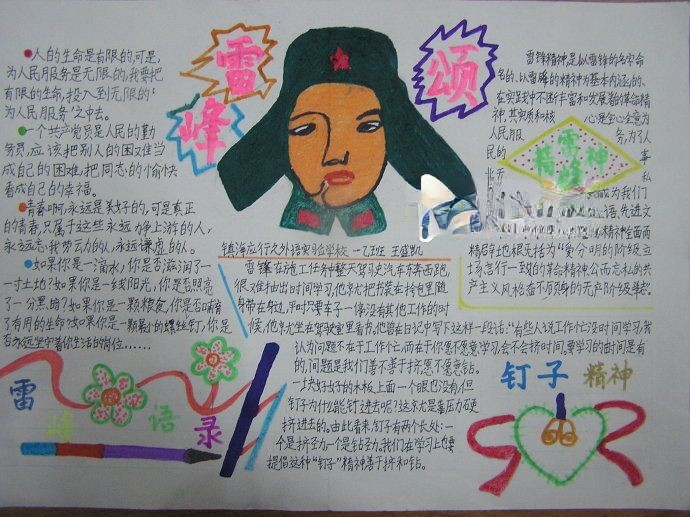 雷
锋
颂
人的生命是有限的,可是,
为人民服务是无限的,我要把
有限的生命,投入到无限的‘
为人民服务’之中去。
一个共产党员是人民的勤
务员,应该把别人的困难当
成自己的困难,把同志的愉快
看成自己的幸福。
青春啊,永远是美好的,可是真正
的青春,只属于这些永远力争上游的人,
永远忘我劳动的人,永远谦虚的人。
如果你是一滴水,你是否滋润了一
寸土地?如果你是一线阳光,你是否照亮
了一分黑暗?如果你是一颗粮食,你是否哺育
了有用的生命?如果你是一颗最小的螺丝钉,你是
否永远坚守着你生活的岗位……
雷
锋
语
录
镇海应行久外语实验学校
雷锋在施工任务中整天驾驶汽车东奔西跑,
很难抽出时间学习,他就把书装在挎包里随
身带在身边,平时只要车子一停,没有其他工作的时
候,他就坐在驾驶室里看书,他曾在日记中写下这样一段话:“有些人说工作忙没时间学习,我
认为问题不在于工作忙,而在于你愿不愿意学习,会不会挤时间,要学习的时间是有
的,问题是我们善不善于挤,愿不愿意钻。
一块好好的木板,上面一个眼也没有,但
钉子为什么能钉进去呢?这就是靠压力硬
挤进去的。由此看来,钉子有两个长处:一
个是挤劲,一个是钻劲。我们在学习上也要
提倡这种“钉子”精神,善于挤和钻。
雷锋精神是以雷锋的名字命
名的、以雷锋的精神为基本内涵的、
在实践中不断丰富和发展着的革命精
神,其实质和核心是全心全意为
人民服务,为了人
民的事
雷
精神
锋
私
成为我们
语,先进文
精神全面而
精辟地概括为“爱分明的阶级立
场、言行一致的革命精神、公而忘私的共
产主义风格、奋不顾身的无产阶级斗志。
钉子精神